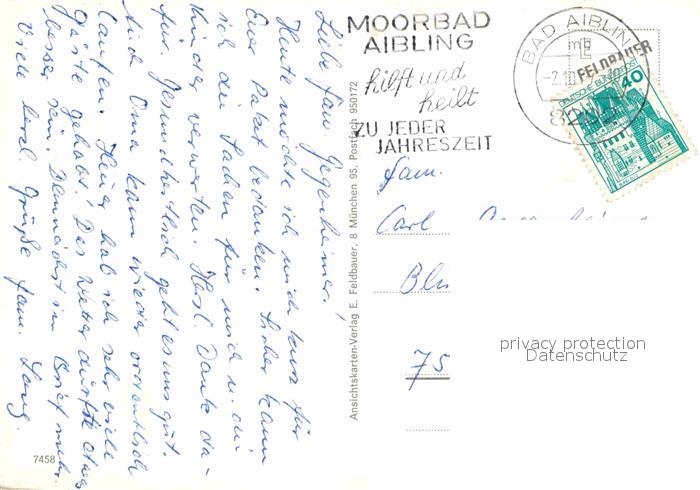 Liebe Fam. Gegenheimer!
Heute möchte ich mich kurz für
Euer Paket bedanken. Sicher kann
ich die Sachen für mich u. die
Kinder verwerten. Herzl. Dank da-
für. Gesundheitlich geht es uns gut.
Auch Oma kann wieder ordentlich
laufen. Heuer hab ich sehr viele
Gäste gehabt. Das Wetter dürfte etwas
besser sein. Demnächst im Brief mehr.
Viele herzl. Grüße Fam. Lang.
7458
Ansichtskarten-Verlag E. Feldbauer, 8 München 95, Postfach 950172
MOORBAD
AIBLING
hilft und
heilt
ZU JEDER
JAHRESZEIT
BAD AIBLING
FELDBAUER
DEUTSCHE BUNDESPOST
40
Fam.
Carl
Blu
75
privacy protection
Datenschutz